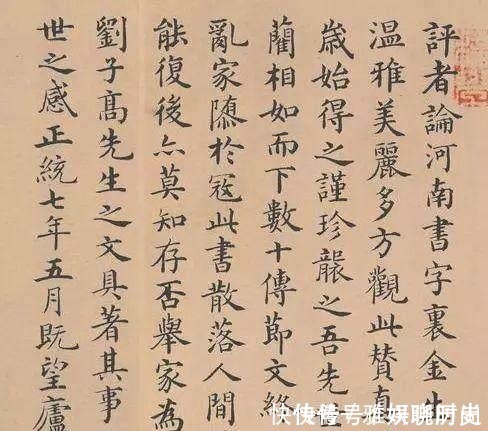 評者論河南書字裏金生
溫雅美麗多方觀此贊有
歲始得之謹珍襲之吾先
藺相如而下數十傳節文
亂家陏於寇此書散落人間
能復後亦莫知存否舉家為
劉子高先生之文具著其事
世之感正統七年五月既望廬